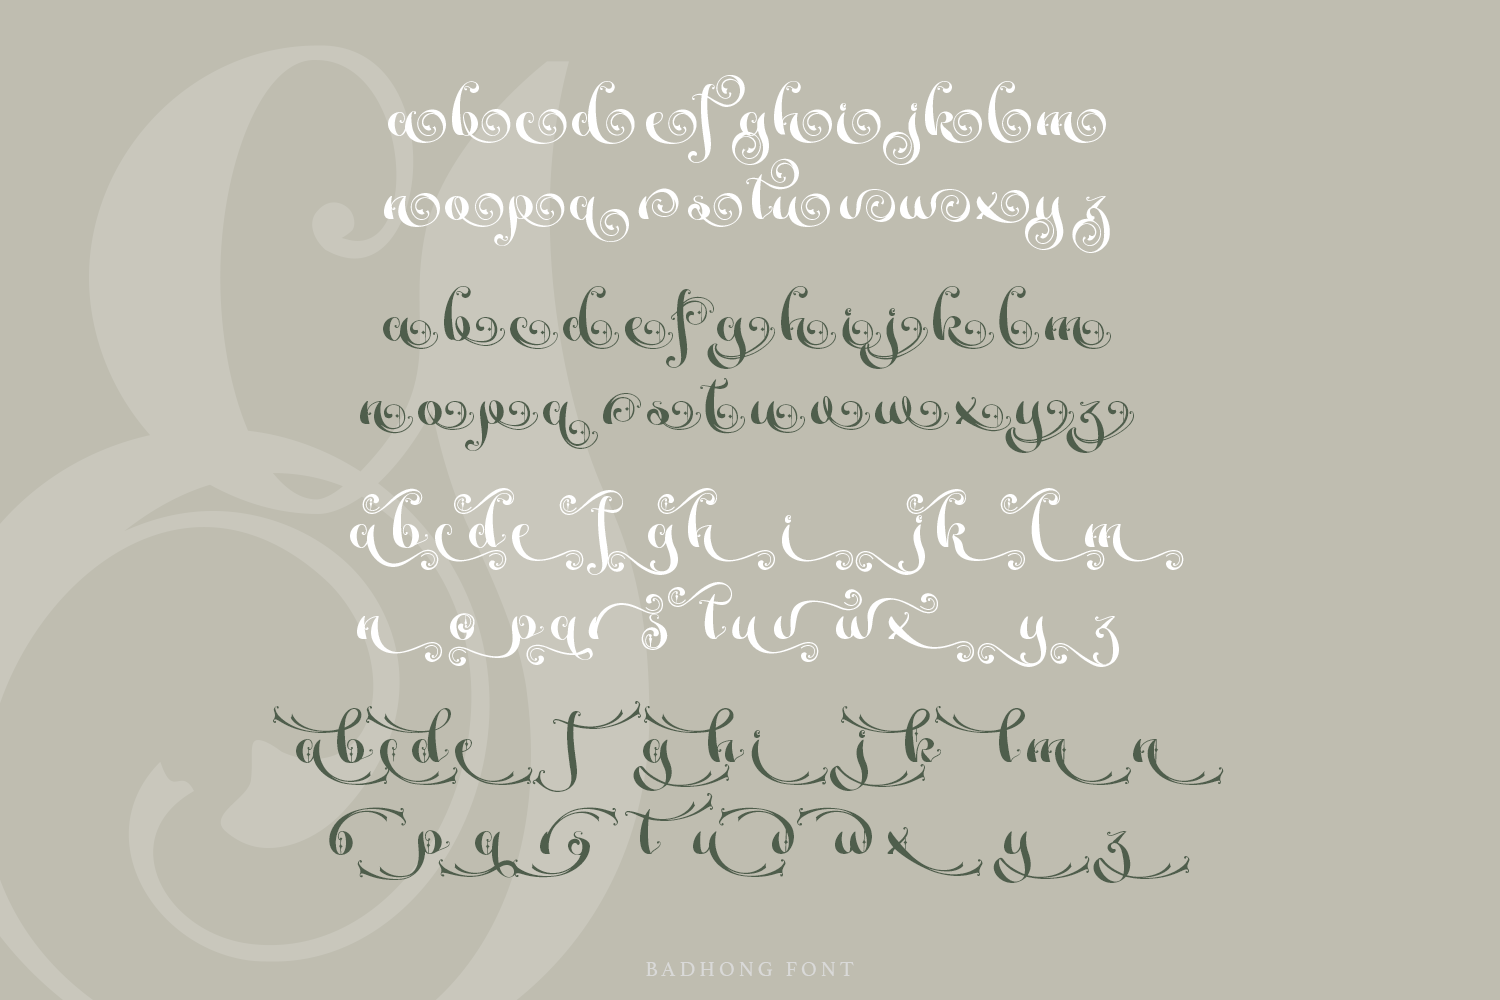 abcdefghijklm
nopqrstuvwxyz
abcdefghijklm
nopqrstuvwxyz
abcdefghijklm
nopqrstuvwxyz
abcdefghijklmn
opqrstuvwxyz
BADHONG FONT